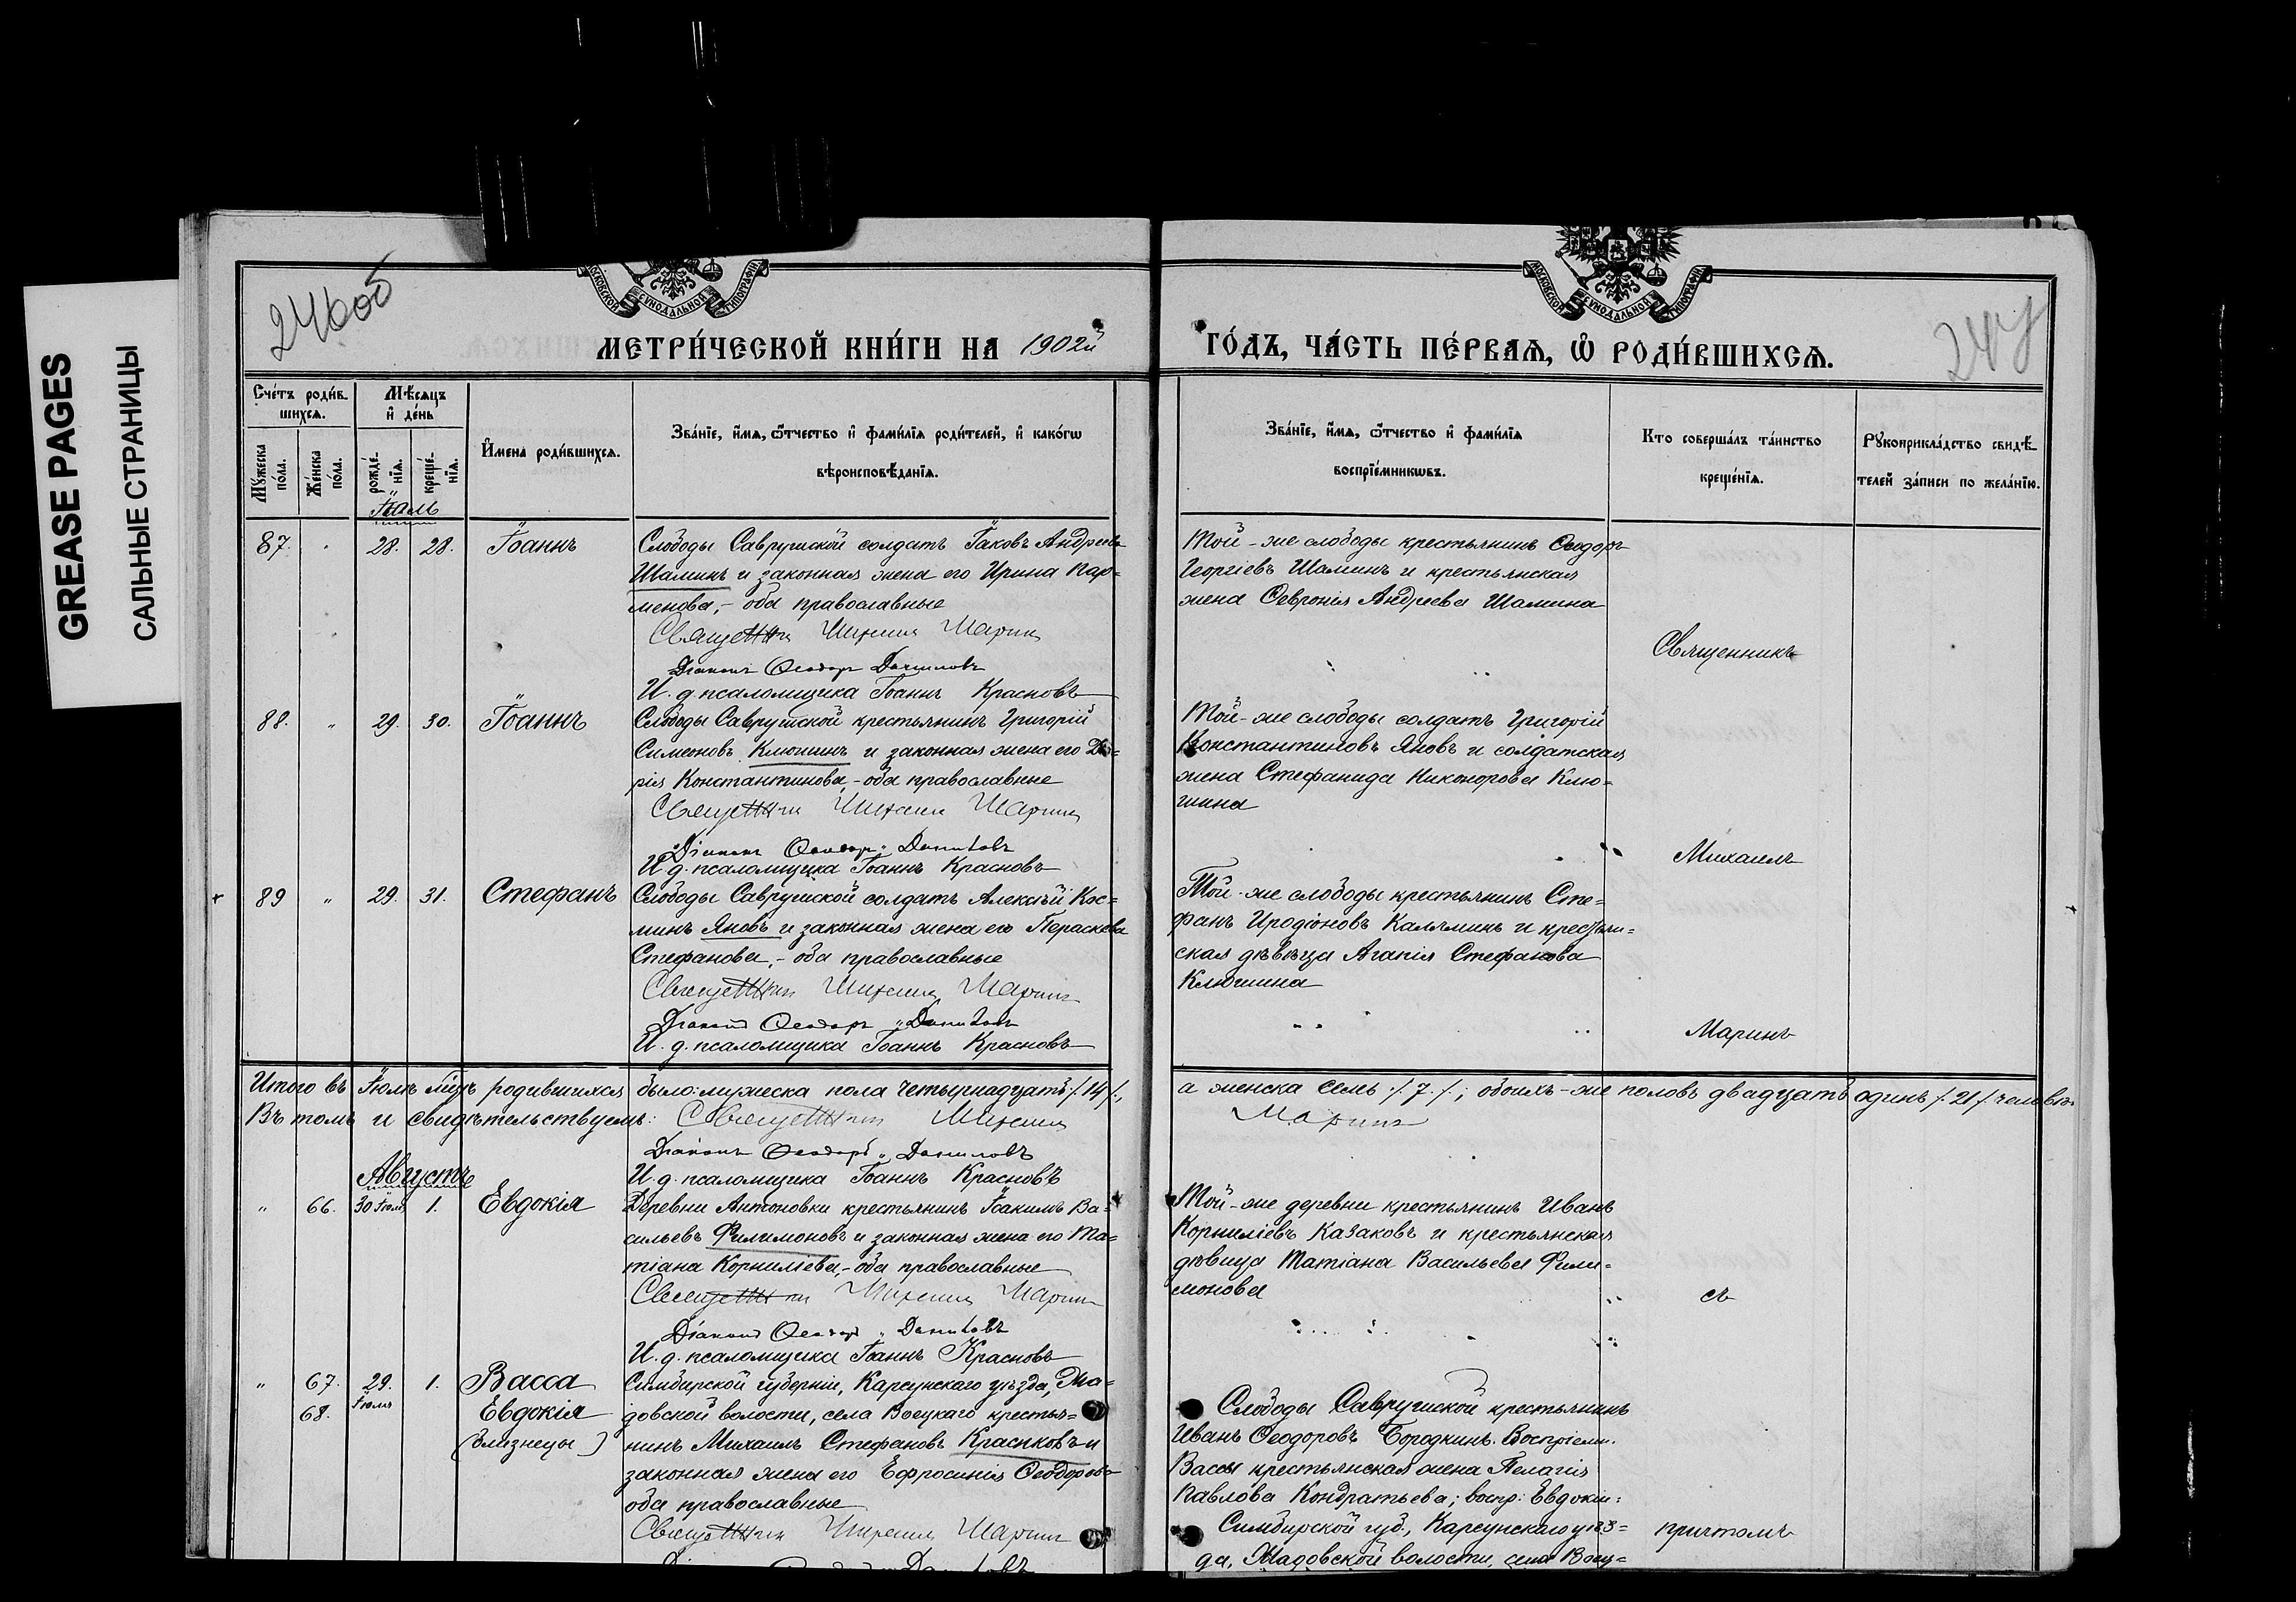 GREASE PAGES
САЛЬНЫЕ СТРАНИЦЫ
246об
247
МОСКОВСКОЙ СУНОДАЛЬНОЙ ТИПОГРАФІИ
МОСКОВСКОЙ СУНОДАЛЬНОЙ ТИПОГРАФІИ
МЕТРИ́ЧЕСКОЙ КНИ́ГИ НА 1902й ГО́ДЪ, ЧА́СТЬ ПЕ́РВАЯ, Ѡ РОДИ́ВШИХСЯ.
Сче́тъ роди́в-
шихся.
Мѣ́сяцъ
и҆ де́нь
Мꙋ́жеска
по́ла.
Же́нска
по́ла.
рожде́-
нїя.
креще́-
нїя.
И҆мена роди́вшихся.
Зва́нїе, и҆́мя, ѻ҆́тчество и҆ фами́лїя роди́телей, и҆ како́гѡ
вѣроисповѣ́данїя.
Зва́нїе, и҆́мя, ѻ҆́тчество и҆ фами́лїя
воспрїе́мникѡвъ.
Кто соверша́лъ та́инство
креще́нїя.
Рꙋкоприкла́дство свидѣ́-
телей за́писи по жела́нїю.
Іюль
87. " 28. 28. Іоаннъ
Слободы Саврушской солдатъ Іаковъ Андреевъ
Шаминъ и законная жена его Ирина Пар=
менова,- оба православные
Священникъ Михаилъ Маринъ
Діаконъ Ѳеодоръ Даниловъ
И. д. псаломщика Іоаннъ Красновъ
Той-же слободы крестьянинъ Ѳеодоръ
Георгіевъ Шаминъ и крестьянская
жена Ѳевронія Андреева Шамина
Священникъ
88. " 29. 30. Іоаннъ
Слободы Саврушской крестьянинъ Григорій
Симеоновъ Клюшинъ и законная жена его Да=
рія Константинова,-оба православные
Священникъ Михаилъ Маринъ
Діаконъ Ѳеодоръ Даниловъ
И. д. псаломщика Іоаннъ Красновъ
Той-же слободы солдатъ Григорій
Константиновъ Яновъ и солдатская
жена Стефанида Никонорова Клю=
шина
Михаилъ
89 " 29. 31. Стефанъ
Слободы Саврушской солдатъ Алексѣй Кос=
минъ Яновъ и законная жена его Параскева
Стефанова,- оба православные
Священникъ Михаилъ Маринъ
Діаконъ Ѳеодоръ Даниловъ
И. д. псаломщика Іоаннъ Красновъ
Той-же слободы крестьянинъ Сте=
фанъ Иродіоновъ Каляминъ и крестьян=
ская дѣвица Агапія Стефанова
Клюшина
Маринъ
Итого въ Іюлѣ м-цѣ родившихся было: мужеска пола четырнадцать /.14/., а женска семь ./.7./.; обоихъ-же половъ двадцать одинъ /.21/. человѣкъ.
Въ томъ и свидѣтельствуемъ: Священникъ Михаилъ Маринъ
Діаконъ Ѳеодоръ Даниловъ
И. д. псаломщика Іоаннъ Красновъ
Августъ
" 66. 30 Іюля 1. Евдокія
Деревни Антоновки крестьянинъ Іоакимъ Ва=
сильевъ Филимоновъ и законная жена его Та=
тіана Корниліева,-оба православные
Священникъ Михаилъ Маринъ
Діаконъ Ѳеодоръ Даниловъ
И. д. псаломщика Іоаннъ Красновъ
Той-же деревни крестьянинъ Иванъ
Корниліевъ Казаковъ и крестьянская
дѣвица Татіана Васильева Фили=
монова
съ
" 67. 29. Іюля 1. Васса
68. Евдокія
(близнецы)
Симбирской губерніи, Карсунскаго уѣзда,
довской волости, села Воецкаго крестья=
нинъ Михаилъ Стефановъ Красиковъ и
законная жена его Ефросинія Ѳеодорова
оба православные
Священникъ Михаилъ Маринъ
Слободы Саврушской крестьянинъ
Иванъ Ѳеодоровъ Бородкинъ. Воспріемн.
Вассы крестьянская жена Пелагія
Павлова Кондратьева; воспр: Евдокіи:
Симбирской губ., Карсунскаго уѣз=
да, волости, села Воец=
причтомъ